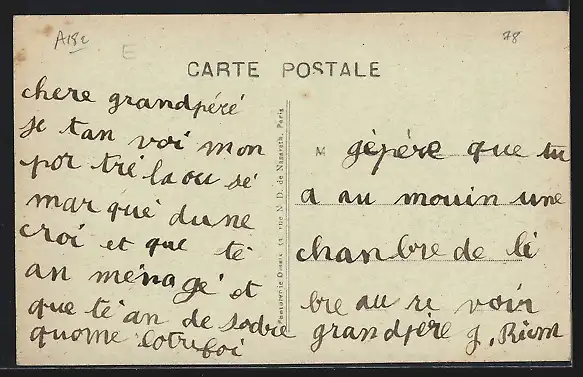 A182
E
78
CARTE POSTALE
chere grandpéré
je tan voi mon
por tré la ou sé
mar qué dune
croi et que té
an ménagé et
que té an de sodre
quome lotrefoi
rue N. D. de Nazareth, Paris
M gépére que tu
a au mouin une
chanbre de li
bre au re voir
grandpére g,